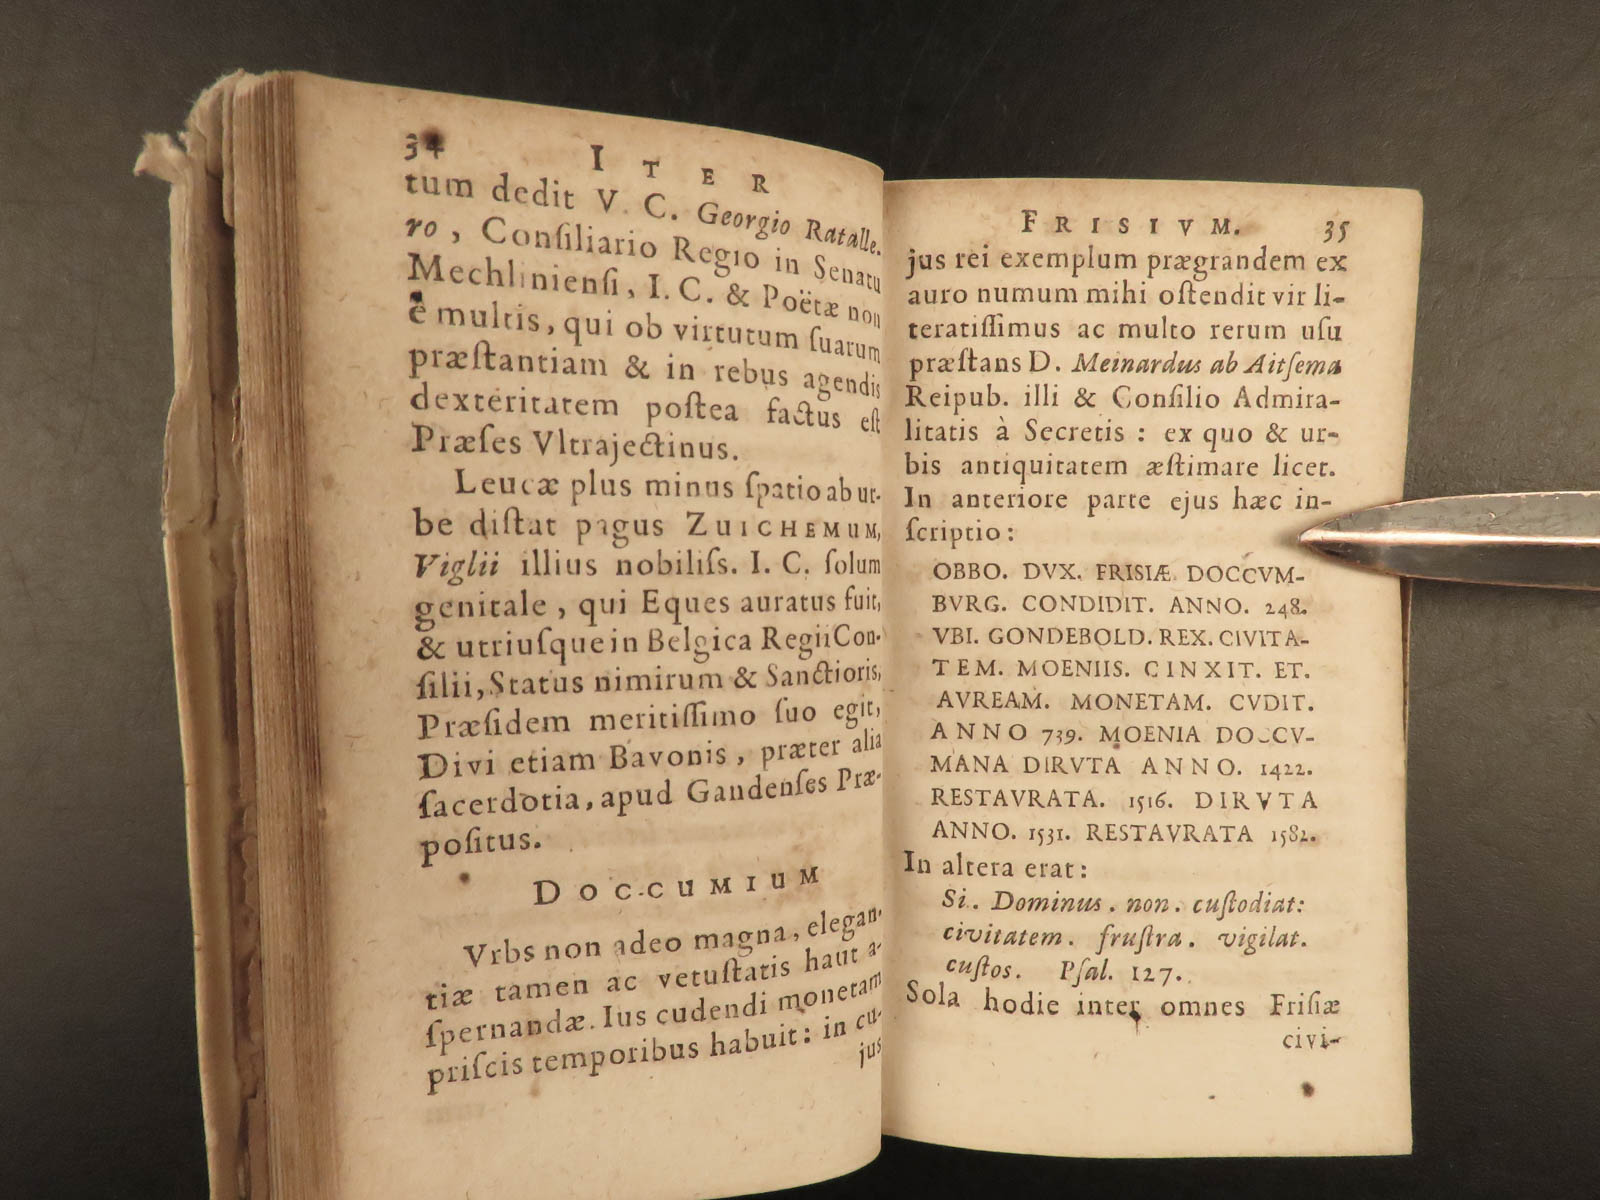 34
ITER
tum dedit V. C. Georgio Ratalle-
ro, Conſiliario Regio in Senatu
Mechlinienſi, I. C. & Poëtæ non
è multis, qui ob virtutum ſuarum
præſtantiam & in rebus agendis
dexteritatem poſtea factus eſt
Præſes Vltrajectinus.
Leucæ plus minus ſpatio ab ur-
be diſtat pagus ZUICHEMUM,
Viglii illius nobiliſs. I. C. ſolum
genitale, qui Eques auratus fuit,
& utriuſque in Belgica Regii Con-
ſilii, Status nimirum & Sanctioris,
Præſidem meritiſſimo ſuo egit,
Divi etiam Bavonis, præter alia
ſacerdotia, apud Gandenſes Præ-
poſitus.
DOCCUMIUM
Vrbs non adeo magna, elegan-
tiæ tamen ac vetuſtatis haut a-
ſpernandæ. Ius cudendi monetam
priſcis temporibus habuit: in cu-
jus
FRISIVM.
35
jus rei exemplum prægrandem ex
auro numum mihi oſtendit vir li-
teratiſſimus ac multo rerum uſu
præſtans D. Meinardus ab Aitſema
Reipub. illi & Conſilio Admira-
litatis à Secretis: ex quo & ur-
bis antiquitatem æſtimare licet.
In anteriore parte ejus hæc in-
ſcriptio:
OBBO. DVX. FRISIÆ DOCCVM-
BVRG. CONDIDIT. ANNO. 248.
VBI. GONDEBOLD. REX. CIVITA-
TEM. MOENIIS. CINXIT. ET.
AVREAM. MONETAM. CVDIT.
ANNO 739. MOENIA DOCCV-
MANA DIRVTA ANNO. 1422.
RESTAVRATA. 1516. DIRVTA
ANNO. 1531. RESTAVRATA 1582.
In altera erat:
Si. Dominus. non. cuſtodiat:
civitatem. fruſtra. vigilat.
cuſtos. Pſal. 127.
Sola hodie inter omnes Friſiæ
civi-